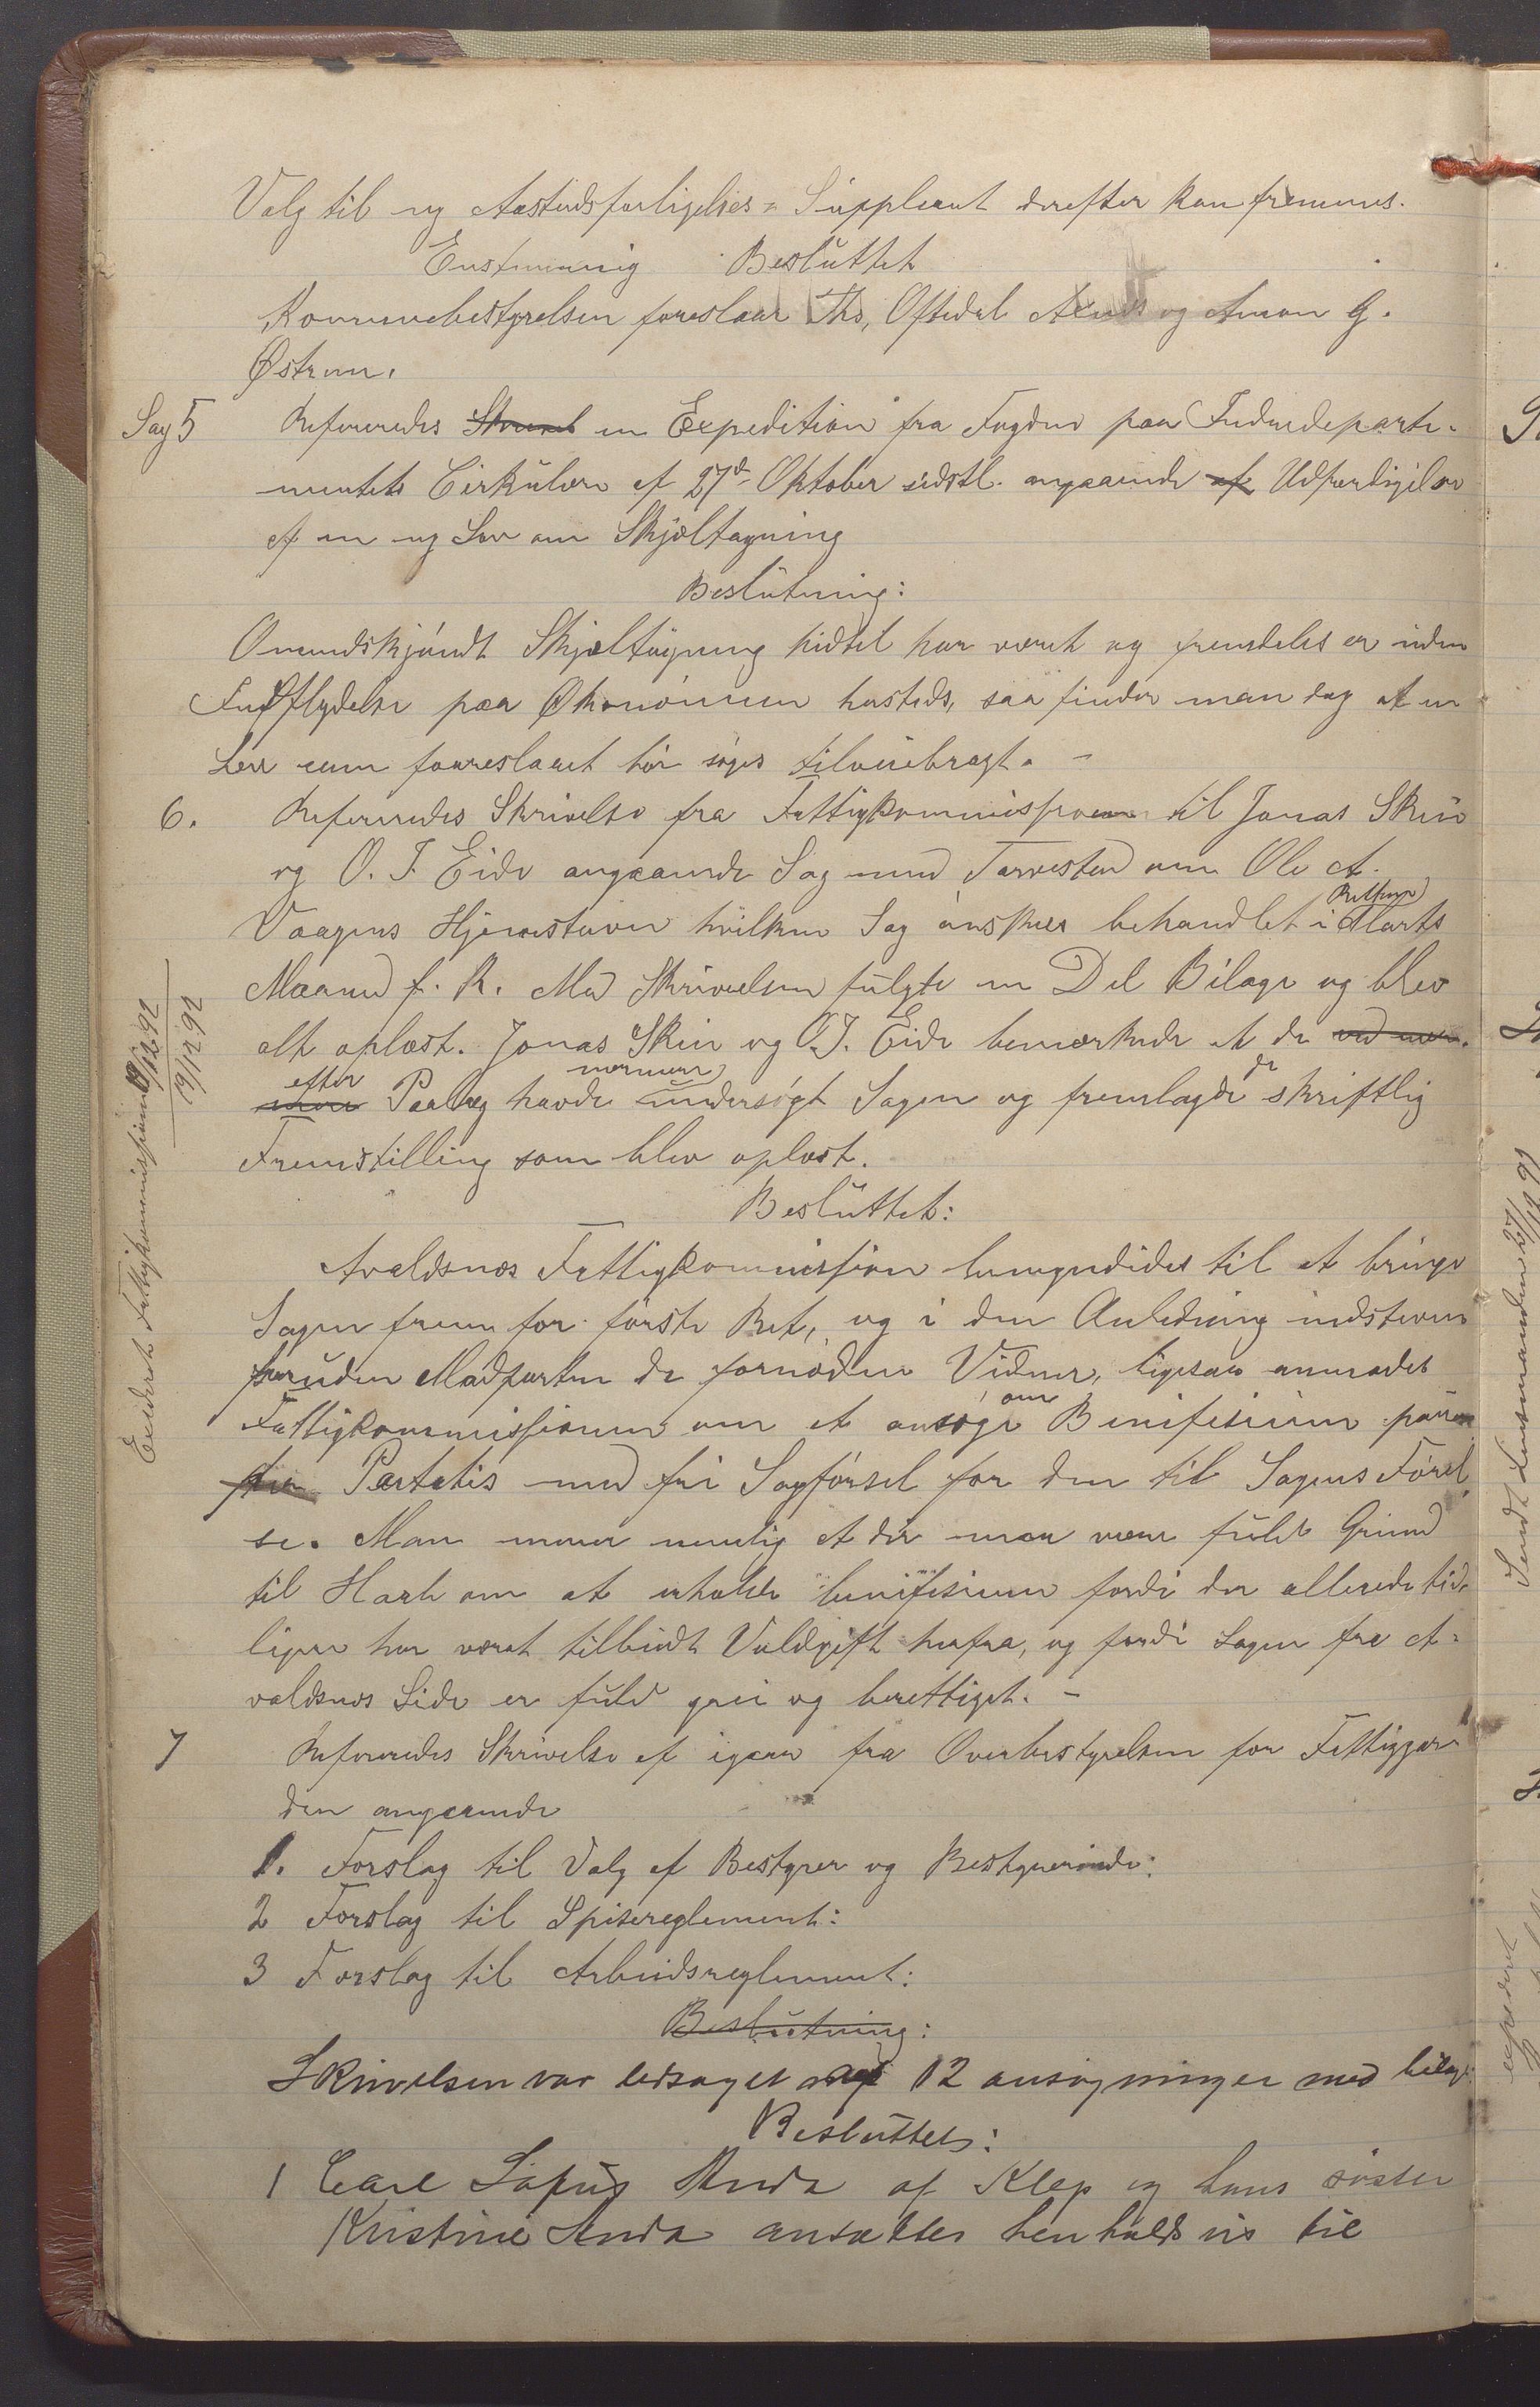 Valg til ny Aastedsforligelses = Suppleant derefter kan fremmes.
Enstemmig Besluttet
Kommunebestyrelsen foreslaar Ths, Oftedal og Amon G.
Østrem.
Sag 5 Refereredes en Expedition fra Fogden paa Indredeparte-
mentets Cirkulære af 27de Oktober sidstl. angaaende af Udfærdigelse
af en ny Lov om Skjæltagning
Beslutning:
Omendskjøndt Skjæltagning hidtil har været og fremdeles er uden
Indflydelse paa Økonomien hersteds, saa finder man dog at en
Lov som foreslaaet bør søges tilveiebragt. -
6. Refereredes Skrivelse fra Fattigkommissionen til Jonas Skeie
og O. J. Eide angaaende Sag med Torvestad om Ole A.
Vaagens Hjemstavn hvilken Sag ønskes behandlet i Marts
Maaned f. k. Med Skrivelsen fulgte en Del Bilage og blev
alt oplæst. Jonas Skeie og O.J. Eide bemærkede at de
efter Paalæg havde nærmere undersøgt Sagen og fremlagde de skriftlig
Fremstilling som blev oplæst.
Besluttet:
Avaldsnæs Fattigkommission bemyndides til at bringe
Sagen frem for første Ret, og i den Anledning indstevne
foruden Modparten de fornødne Vidner, ligesaa anmodes
Fattigkommissionen om at ansøge om Benifisium paurer
Partatis med fri Sagførsel for den til Sagens Førel
se. Man mener nemlig at der maa være fuld Grund
til Haab om at erholde benifisium fordi der allerede tid-
ligere har været tilbudt Voldgift herfra, og fordi Sagen fra A-
valdsnæs Side er fuld grei og berettiget. -
7 Refereredes Skrivelse af igaar fra Overbestyrelsen for Fattiggaar-
den angaaende
1. Forslag til Valg af Bestyrer og Bestyrerinde:
2 Forslag til Spisereglement:
3 Forslag til Arbeidsreglement:
Beslutning:
Skrivelsen var ledsaget af 12 ansøgninger med bilag.
Besluttet:
1 Carl Sofus Anda af Klep og hans søster
Kristine Anda ansættes henholdsvis til
Exideret Fattigkommissionen
19/12 92
Sendt Lensmanden 27/12 92